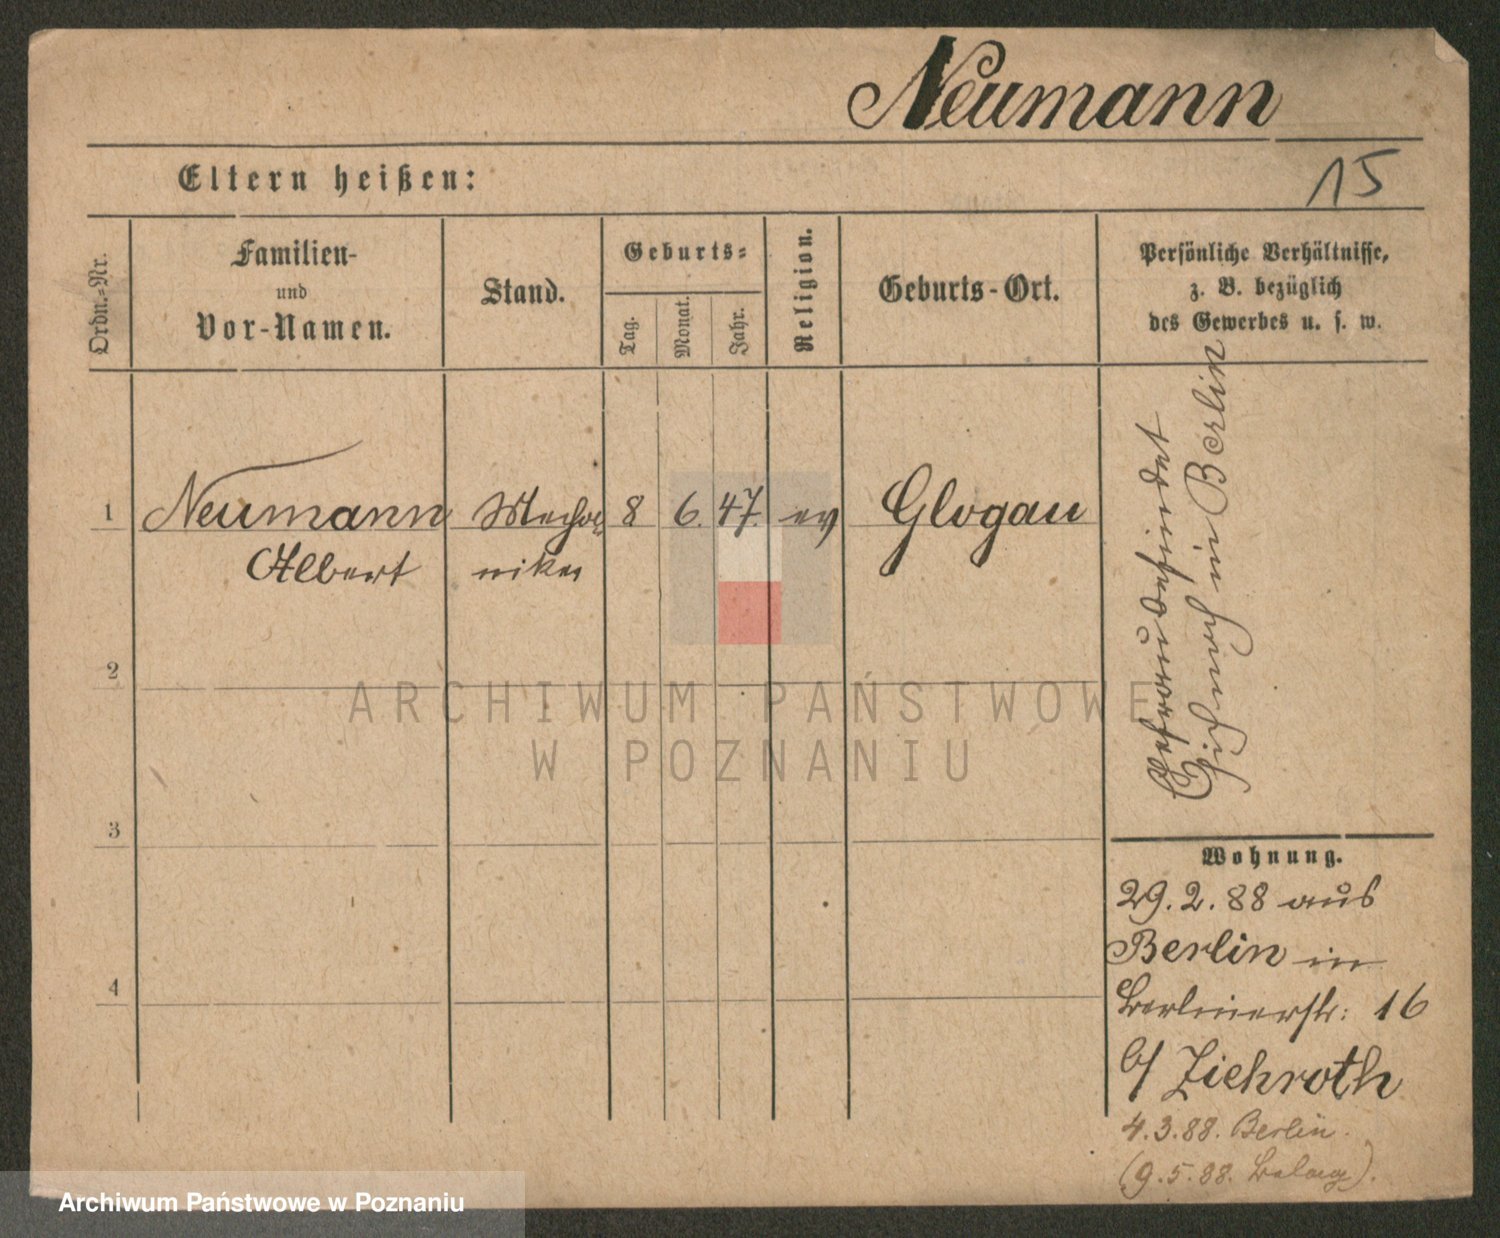 Neumann
Eltern heißen:
15
Ordn.-Nr.
Familien-
und
Vor-Namen.
Stand.
Geburts-
Tag.
Monat.
Jahr.
Religion.
Geburts-Ort.
Persönliche Verhältnisse,
z. B. bezüglich
des Gewerbes u. s. w.
1
Neumann
Albert
Mecha-
niker
8
6.
47.
ev
Glogau
Ehefrau befindet
sich noch in Berlin
2
3
4
Wohnung.
29.2.88 aus
Berlin in
Berlinerstr: 16
b/ Ziehroth
4.3.88. Berlin.
(9.5.88.
ARCHIWUM PAŃSTWOWE
W POZNANIU
Archiwum Państwowe w Poznaniu